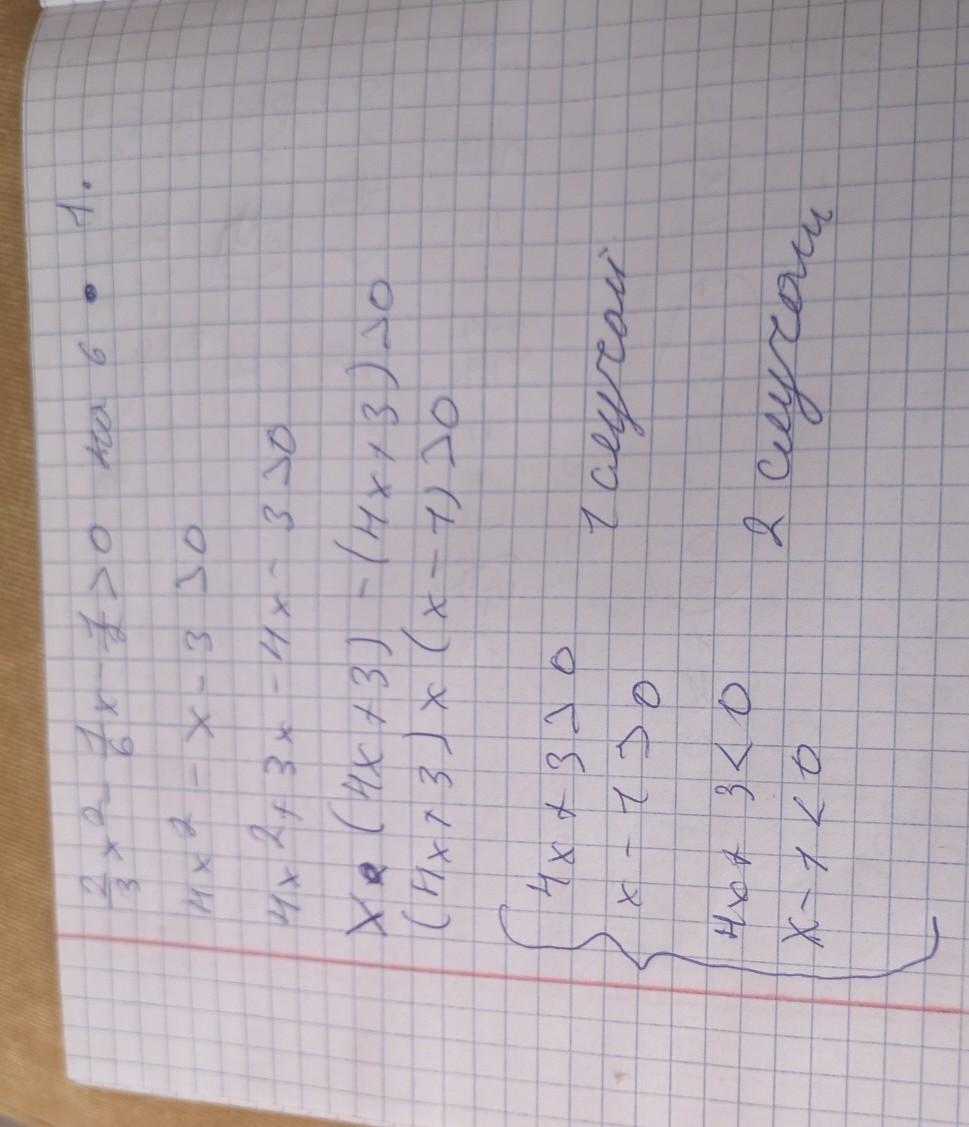 2/3 x² - 1/6 x - 1/2 > 0 на 6 • 1.
4x² - x - 3 > 0
4x² + 3x - 4x - 3 > 0
x • (4x + 3) - (4x + 3) > 0
(4x + 3) x (x - 1) > 0
{ 4x + 3 > 0 1 случай
x - 1 > 0
4x + 3 < 0 2 случаи
x - 1 < 0